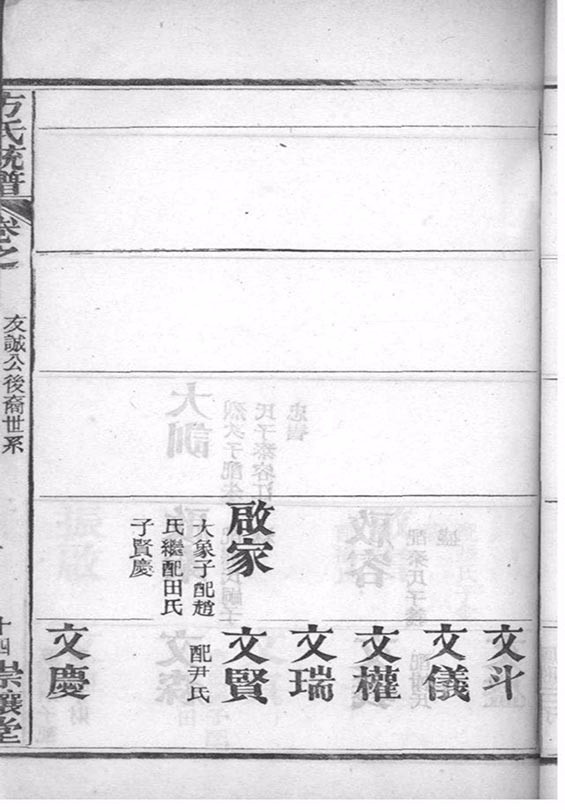 文斗
文儀
文權
文瑞
啟家
大象子配趙
氏繼配田氏
子賢慶
文賢
配尹氏
文慶
方氏統譜
卷之
友誠公後裔世系
十四
崇讓堂